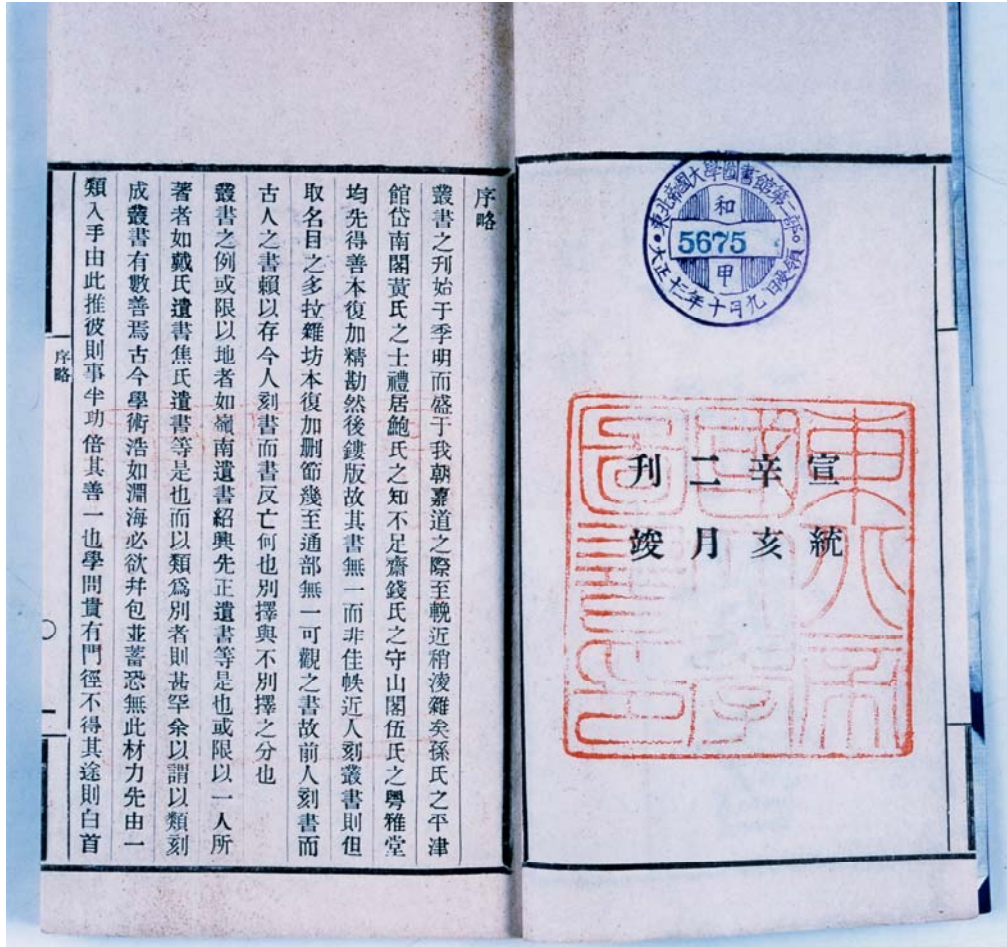 東北帝國大學圖書館第二部
和
5675
甲
大正十二年十月九日受領
宣統
辛亥
二月
刊竣
東北帝
國大學
圖書印
序略
叢書之刊始于季明而盛于我朝嘉道之際至輓近稍淩雜矣孫氏之平津
館岱南閣黃氏之士禮居鮑氏之知不足齋錢氏之守山閣伍氏之粵雅堂
均先得善本復加精勘然後鏤版故其書無一而非佳帙近人刻叢書則但
取名目之多拉雜坊本復加刪節幾至通部無一可觀之書故前人刻書而
古人之書賴以存今人刻書而書反亡何也別擇與不別擇之分也
叢書之例或限以地者如嶺南遺書紹興先正遺書等是也或限以一人所
著者如戴氏遺書焦氏遺書等是也而以類爲別者則甚罕余以謂以類刻
成叢書有數善焉古今學術浩如淵海必欲幷包並蓄恐無此材力先由一
類入手由此推彼則事半功倍其善一也學問貴有門徑不得其途則白首
序略